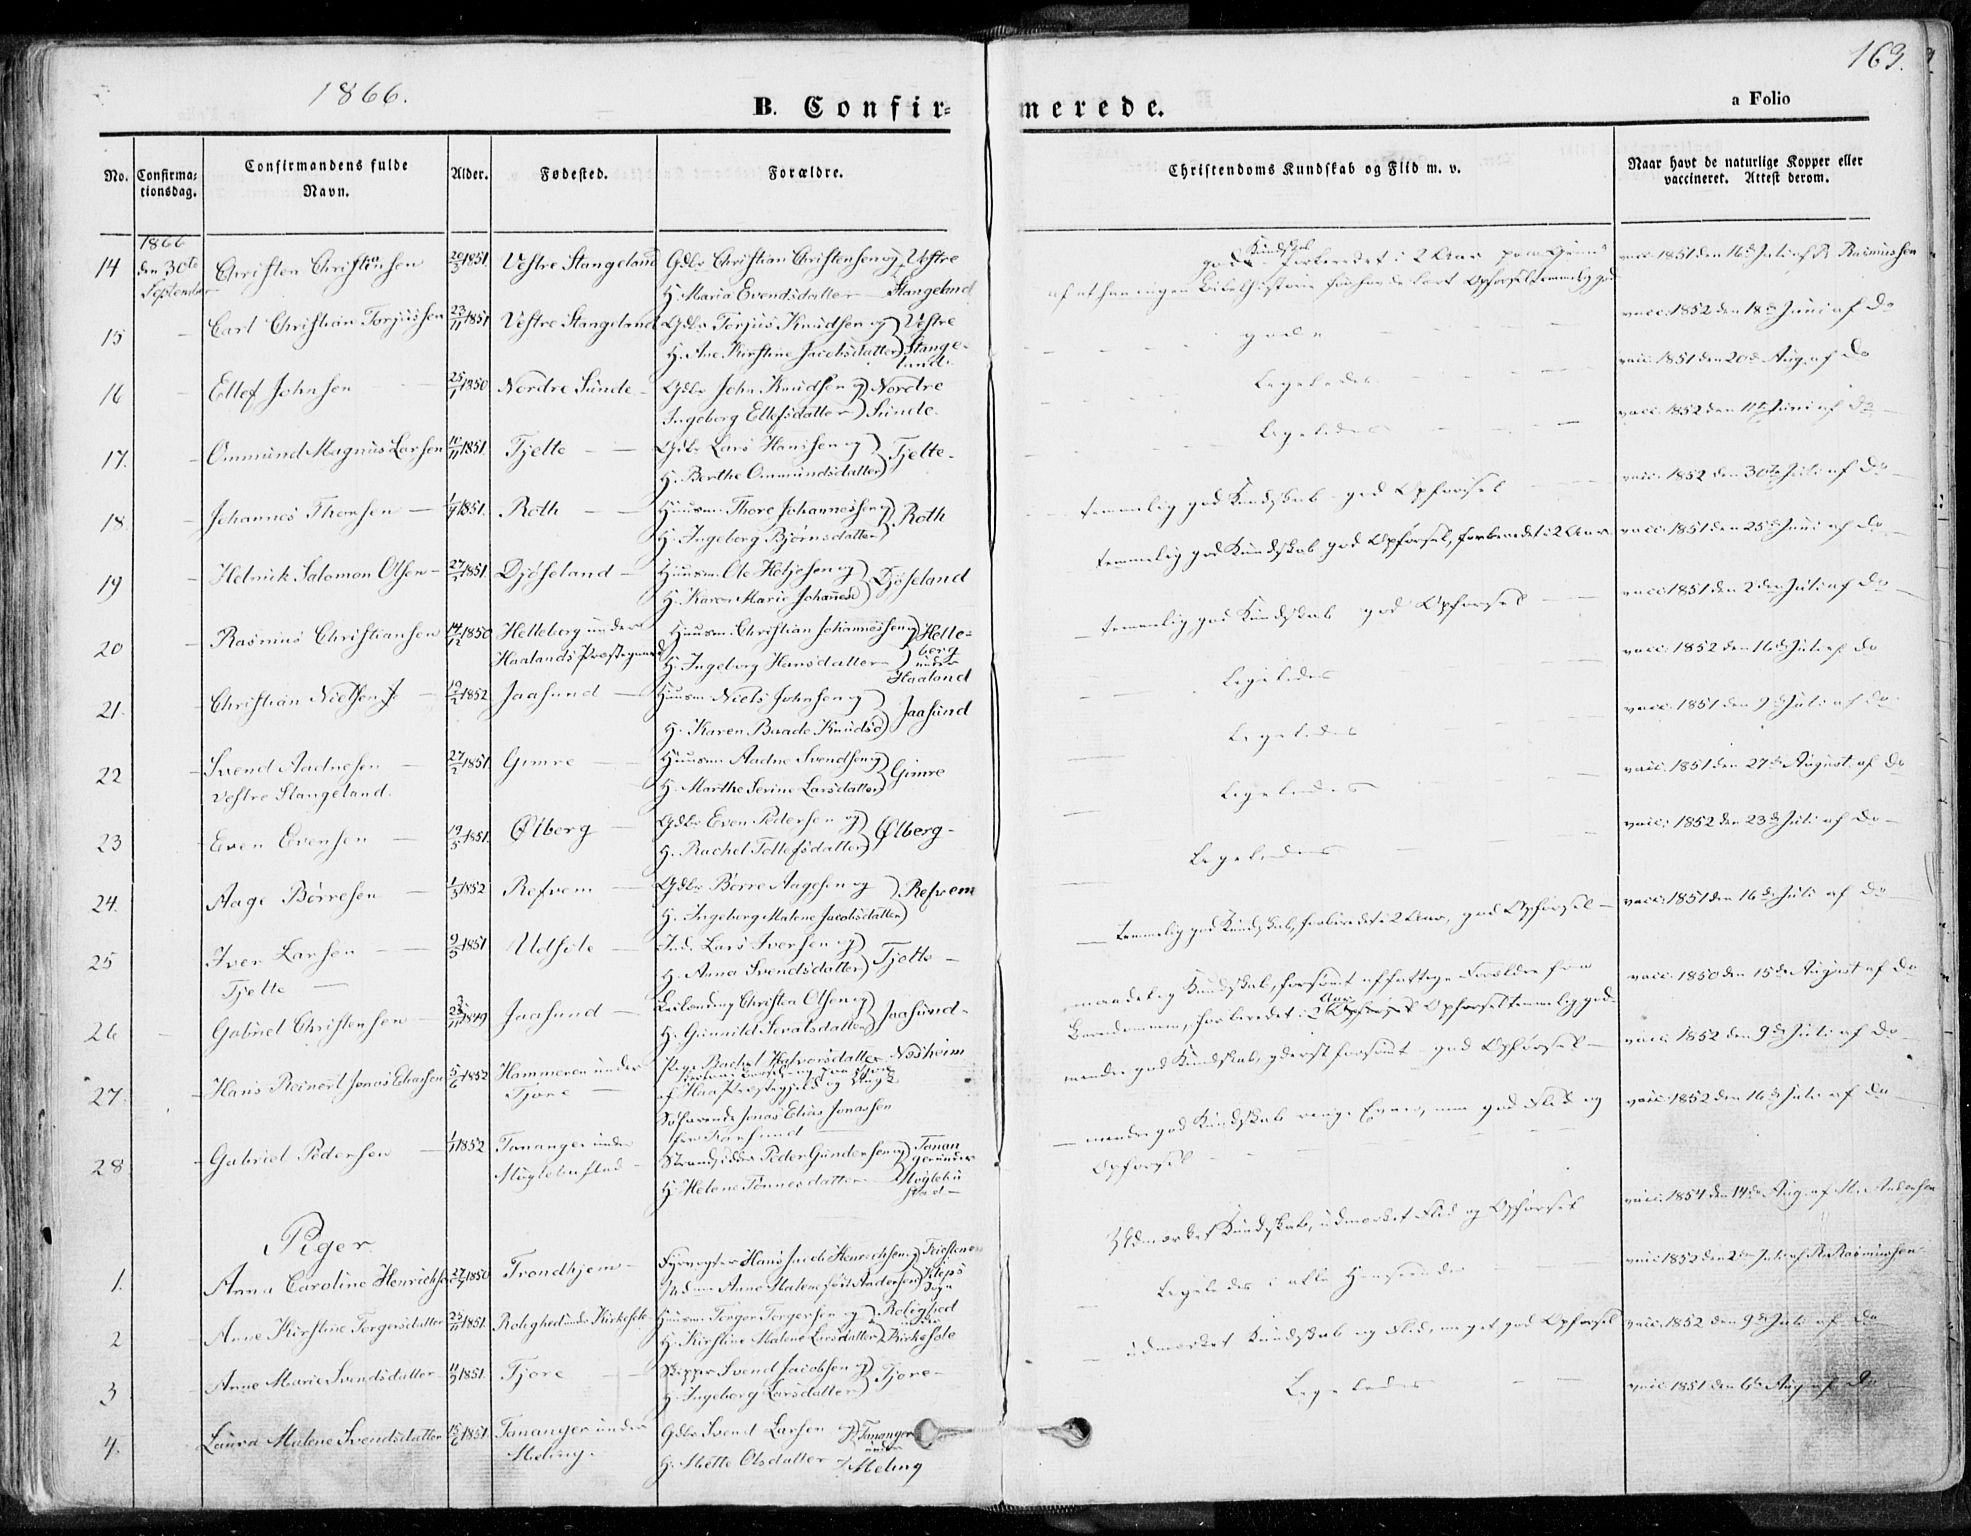 1866.
163.
B. Confir=
merede.
a Folio
No.
Confirma=
tionsdag.
Confirmandens fulde
Navn.
Alder.
Fødested.
Forældre.
Christendoms Kundskab og Flid m. v.
Naar havt de naturlige Kopper eller
vaccineret. Attest derom.
1866
14 den 30te Christen Christiansen 20/3 1851. Vestre Stangeland Gdbr Christian Christensen og Vestre
September H. Maria Evendsdatter Stangeland
Kundskab forberedet i 2 Aar paa Grund vacc. 1851 den 16de Juli af R. Rasmussen
af at han ingen Bibelhistorie havde lært Opførsel temmelig god
15 - Carl Christian Torjussen 23/11 1851 Vestre Stangeland Gdbr Torjus Knudsen og Vestre
H. Ane Kirstine Jacobsdatter Stange-
land.
gode vacc. 1852 den 18de Juni af Do
16 - Ellef Johnsen 25/1 1850 Nordre Sunde - Gdbr John Knudsen og Nordre
Ingeborg Ellefsdatter Sunde.
Ligeledes vacc. 1851 den 20de Aug. af Do
17. - Ommund Magnus Larsen 10/11 1851. Tjelte - Gdbr Lars Hansen og Tjelte.
H. Berthe Ommundsdatter
Ligeledes vacc. 1852 den 11te Juni af Do
18 - Johannes Thorsen 1/9 1851. Roth - Huusm. Thore Johannessen og Roth
H. Ingeborg Bjørnsdatter
temmelig god Kundskab - god Opførsel vacc. 1852 den 30te Juli af Do
19 - Helmik Salomon Olsen 27/2 1851. Djøseland - Huusm. Ole Hetjesen og Djøseland
H. Karen Marie Johannesd
temmelig god Kundskab god Opførsel, forberedet i 2 Aar vacc. 1851 den 25de Juni af Do
20 - Rasmus Christiansen 14/12 1850 Helleberg under Huusm. Christian Johannessen og Helle-
Haalands Præstegaard H. Ingeborg Hansdatter berg
under
Haaland
temmelig god Kundskab god Opførsel vacc. 1851 den 2den Juli af Do
21. - Christian Nielsen J. 19/2 1852 Jaasund - Huusm Niels Johnsen og Jaasund
H. Karen Baade Knudsd
Ligeledes vacc. 1852 den 16de Juli af Do
22 - Svend Aadnesen 27/2 1851 Gimre - Huusm Aadne Svendsen og Gimre
Vestre Stangeland. H. Marthe Serine Larsdatter
Ligeledes vacc. 1851 den 9de Juli af Do
23 Even Evensen 19/5 1851. Ølberg - Gdbr Even Pedersen og Ølberg-
H. Rachel Tollefsdatter
Ligeledes vacc. 1851 den 27de August af Do
24. Aage Børresen 1/3 1852 Refvem Gdbr Børre Aagesen og Refvem
H. Ingeborg Malene Jacobsdatter
Ligeledes vacc. 1852 den 23de Juli af Do
25 Iver Larsen 9/3 1851 Udsole Ind. Lars Iversen og Tjelte
Tjelte - H. Anna Svendsdatter
temmelig god Kundskab, forberedet i 2 Aar, god Opførsel vacc. 1851 den 16de Juli af Do
26 Gabriel Christensen 23/11 1849 Jaasund Leilending Christen Olsen og Jaasund-
H. Gunnild Seratsdatter
maadelig Kundskab, forsømt af fattige Forældre fra vacc. 1850 den 15de August af Do
Barndommen, forberedet i 2 Aar Opførsel temmelig god
27. Hans Reinert Jonas Eliassen 5/6 1852 Hammeren under Pige Rachel Halvorsdatter Nesheim
Tjore - af Haa Præstegjeld og Ungk
Søfarende Jonas Elias Jonassen
fra Farsund
mindre god Kundskab, yderst forsømt - god Opførsel vacc. 1852 den 9de Juli af Do
28 Gabriel Pedersen 1/1 1852 Tananger under Strandsidder Peder Gundersen og Tanan
Myglebustad H. Helene Tønnesdatter ger under
Myglebu
stad
mindre god Kundskab ringe Evner, men god Flid og vacc. 1852 den 16de Juli af Do
Opførsel
Piger
1. Anna Caroline Henrichsen 27/7 1850 Trondhjem Fyrvogter Hans Jacob Henrichsen og Feiesten
Md. Anne Malene født Andersen Kleps
Sogn
Udmærket Kundskab, udmærket Flid og Opførsel vacc. 1854 den 14de Aug. af M. Andersen
2 Anne Kirstine Torgersdatter 25/11 1851. Rolighed under Kirkesole Huusm Torger Torgersen og Rolighed
H. Kirstine Malene Larsdatter under
Kirkesole
Ligeledes i alle Henseender vacc. 1852 den 2den Juli af R. Rasmussen
3 Anne Marie Svendsdatter 11/3 1851. Tjore - Skipper Svend Jacobsen og Tjore-
H. Ingeborg Larsdatter
udmærket Kundskab og Flid, meget god Opførsel vacc. 1852 den 9de Juli af Do
4. Laura Malene Svendsdatter 15/6 1851. Tananger under Gdbr Svend Larsen og Tananger
Meling. H. Mette Olsdatter under
Meling
Ligeledes vacc. 1851 den 6te Aug. af Do